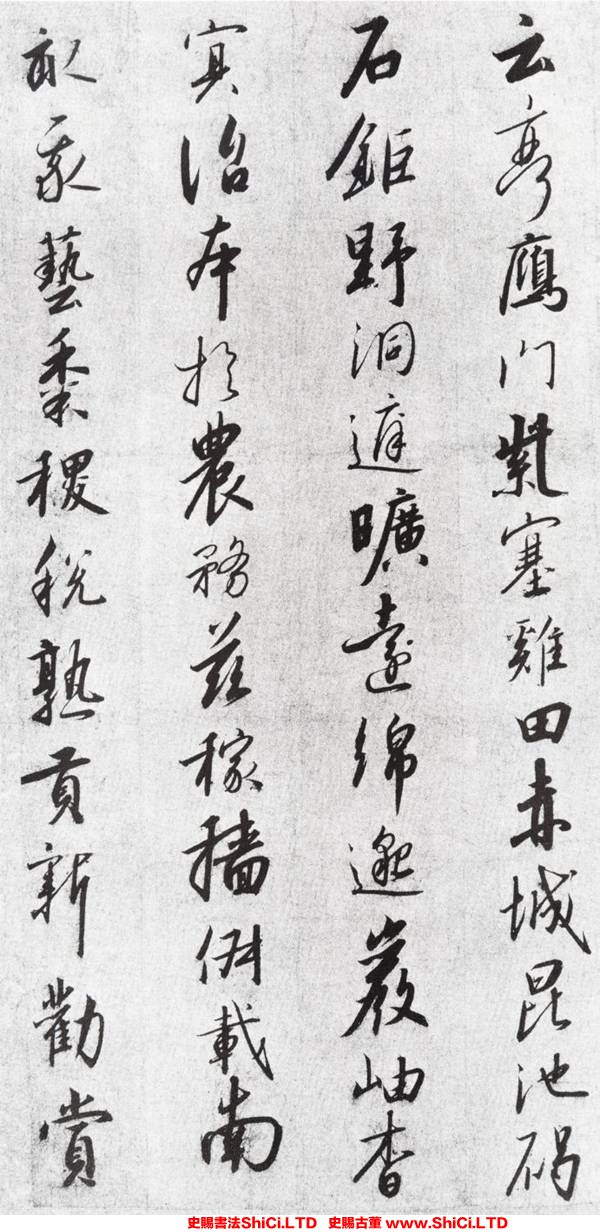 云亭鴈門紫塞雞田赤城昆池碣
石鉅野洞庭曠遠綿邈巖岫杳
冥治本於農務茲稼穡俶載南
畝我藝黍稷稅熟貢新勸賞
史賜書法ShiCi.LTD 史賜古董 www.ShiCi.LTD